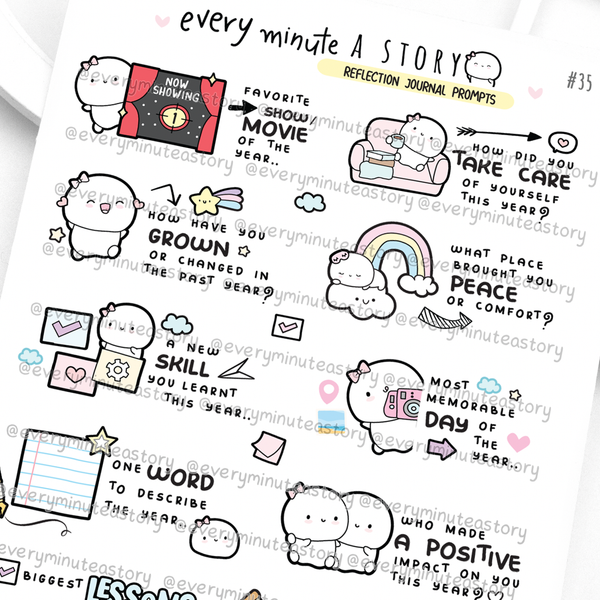 every minute A STORY
REFLECTION JOURNAL PROMPTS
#35
NOW
SHOWING
1
FAVORITE
SHOW/
MOVIE
OF THE
YEAR..
HOW DID YOU
TAKE CARE
OF YOURSELF
THIS YEAR?
HOW HAVE YOU
GROWN
OR CHANGED IN
THE PAST YEAR?
WHAT PLACE
BROUGHT YOU
PEACE
OR COMFORT?
A NEW
SKILL
YOU LEARNT
THIS YEAR..
MOST
MEMORABLE
DAY OF
THE
YEAR..
ONE WORD
TO DESCRIBE
THE YEAR..
WHO MADE
A POSITIVE
IMPACT ON YOU
THIS YEAR?
BIGGEST
LESSONS
@everyminuteastory